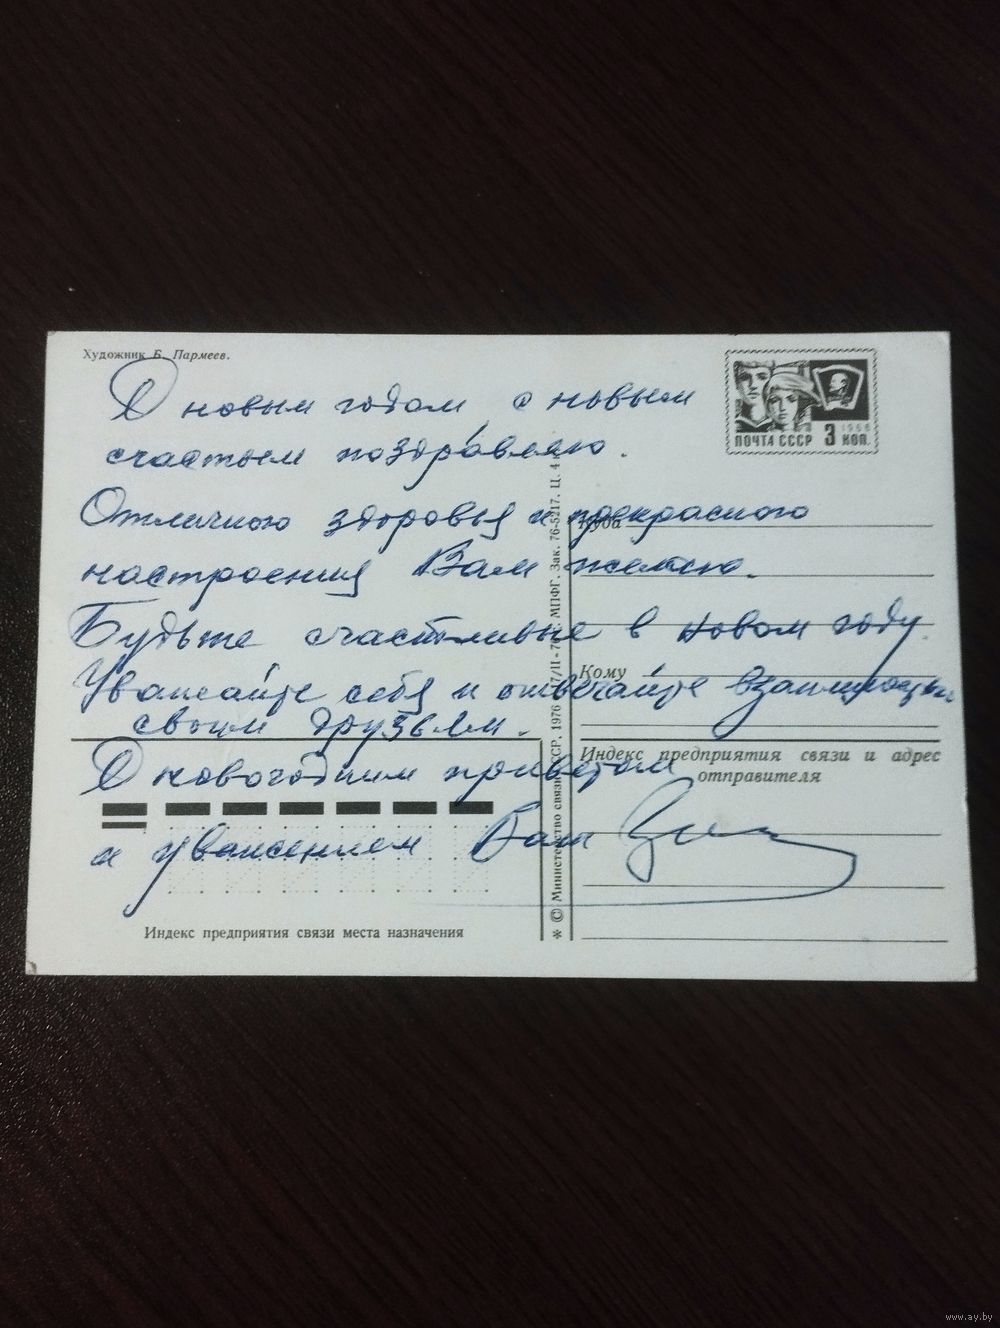 Художник Б. Пармеев.
С новым годом с новым
счастьем поздравляю.
Отличного здоровья и прекрасного
настроения Вам желаю.
Будьте счастливые в новом году.
Уважайте себя и отвечайте взаимностью
своим друзьям.
С новогодним приветом
и уважением Ваш
ПОЧТА СССР 3 КОП.
1966
Куда
Кому
Индекс предприятия связи и адрес
отправителя
Индекс предприятия связи места назначения
* © Министерство связи СССР. 1976 МПФГ. Зак. 76-5217. Ц. 4 к.
www.ay.by